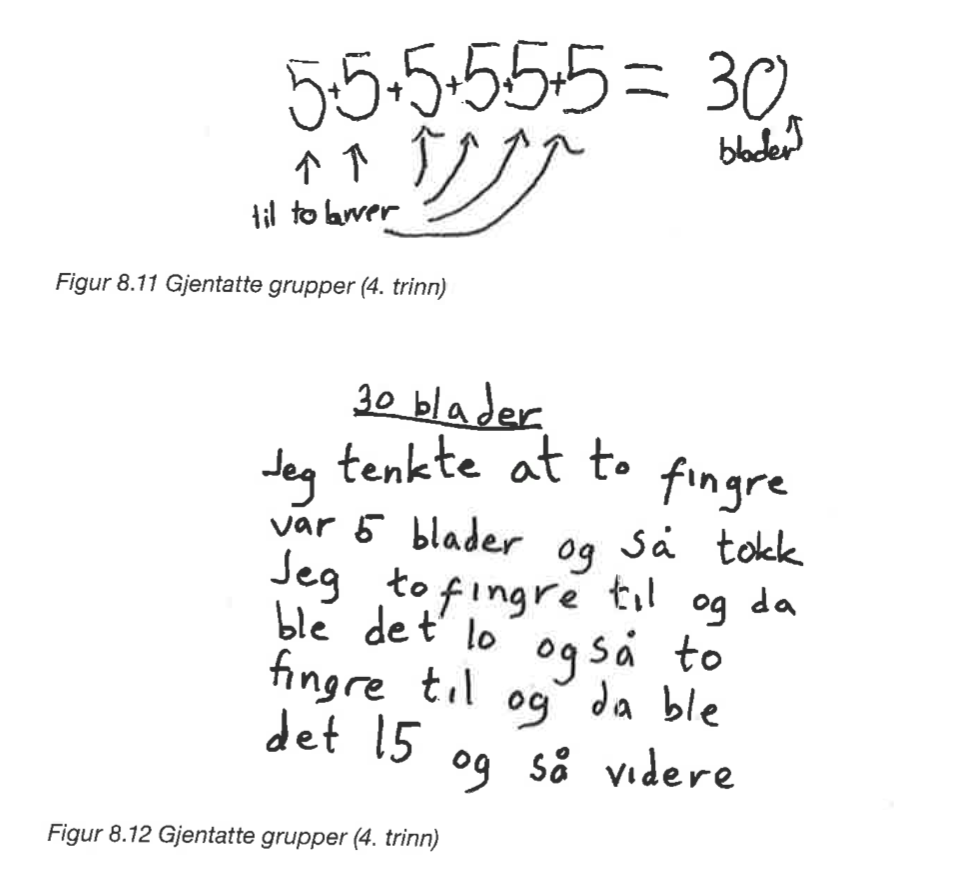 5+5+5+5+5+5=30
blader
til to larver
Figur 8.11 Gjentatte grupper (4. trinn)
30 blader
Jeg tenkte at to fingre
var 5 blader og så tokk
Jeg to fingre til og da
ble det 10 og så to
fingre til og da ble
det 15 og så videre
Figur 8.12 Gjentatte grupper (4. trinn)